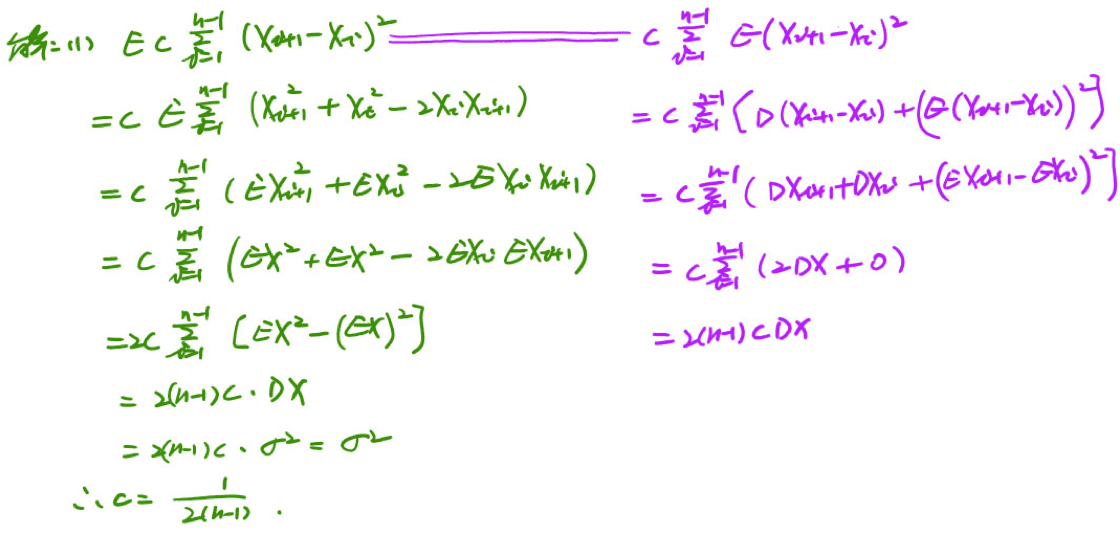 解:(1) E C ∑_{i=1}^{n-1} (X_{i+1} - X_i)² ═══ C ∑_{i=1}^{n-1} E(X_{i+1} - X_i)²
= C E ∑_{i=1}^{n-1} (X_{i+1}² + X_i² - 2X_i X_{i+1})
= C ∑_{i=1}^{n-1} (EX_{i+1}² + EX_i² - 2EX_i X_{i+1})
= C ∑_{i=1}^{n-1} (EX² + EX² - 2EX_i EX_{i+1})
= 2C ∑_{i=1}^{n-1} [EX² - (EX)²]
= 2(n-1)C · DX
= 2(n-1)C · σ² = σ²
∴ C = \frac{1}{2(n-1)} .
= C ∑_{i=1}^{n-1} [D(X_{i+1} - X_i) + (E(X_{i+1} - X_i))²]
= C ∑_{i=1}^{n-1} (DX_{i+1} + DX_i + (EX_{i+1} - EX_i)²]
= C ∑_{i=1}^{n-1} (2DX + 0)
= 2(n-1) C DX